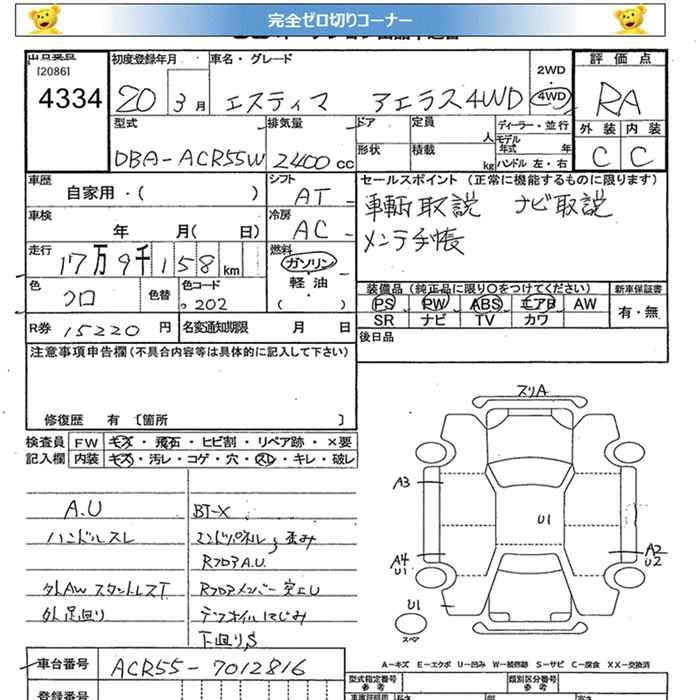 完全ゼロ切りコーナー
出品票
[2086]
4334
初度登録年月
20
3月
車名・グレード
エスティマ アエラス4WD
2WD
・
4WD
評価点
RA
外装 内装
C C
型式
DBA-ACR55W
排気量
2400cc
ドア
形状
定員
人
積載
kg
ディーラー・並行
モデル年式 年
ハンドル 左・右
車歴
自家用・( )
シフト
AT
セールスポイント (正常に機能するものに限ります)
車輌取説 ナビ取説
メンテ手帳
車検
年 月( 日)
冷房
AC
走行
17万9千158km
燃料
ガソリン
軽油
( )
色
クロ
色替
色コード
202
装備品(純正品に限り○をつけてください)
PS PW ABS エアB AW
SR ナビ TV カワ
新車保証書
有・無
R券 15220円
名変通知期限 月 日
後日品
注意事項申告欄(不具合内容等は具体的に記入して下さい)
修復歴 有 〔箇所 〕
検査員
記入欄
FW キズ・飛石・ヒビ割・リペア跡・×要
内装 キズ・汚レ・コゲ・穴・スレ・キレ・破レ
A.U
ハンドルスレ
外AWスタットレスT
外足廻り
BT-X
エンドパネル 歪み
RフロアA.U.
Rフロアメンバー突上U
デフオイルにじみ
下廻りS
スリA
A3
U1
A4
U1
A2
U2
U1
スペア
A-キズ E-エクボ U-凹み W-補修跡 S-サビ C-腐食 XX-交換済
車台番号
ACR55-7012816
登録番号
型式指定番号
参考
類別区分番号
参考
長さ
幅
高さ